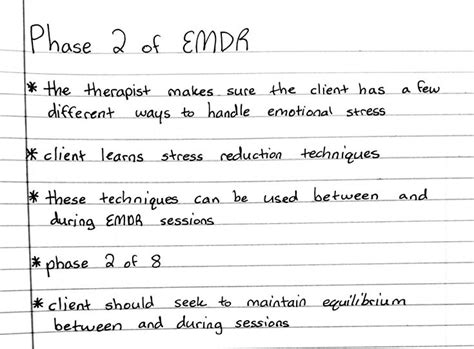 Phase 2 of EMDR
* the therapist makes sure the client has a few
different ways to handle emotional stress
* client learns stress reduction techniques
* these techniques can be used between and
during EMDR sessions
* phase 2 of 8
* client should seek to maintain equilibrium
between and during sessions